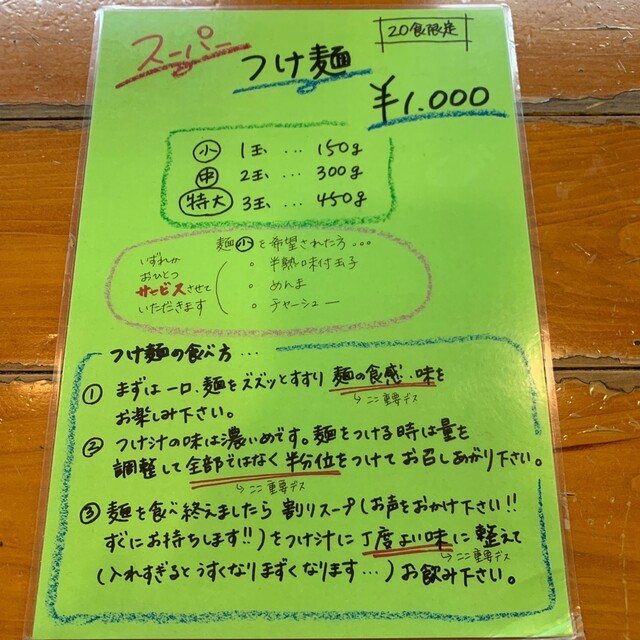 スーパー
20食限定
つけ麺
¥1.000
小 1玉 ... 150g
中 2玉 ... 300g
特大 3玉 ... 450g
麺小を希望された方...
いずれか
おひとつ
サービスさせて
いただきます
。半熟味付玉子
。めんま
。チャーシュー
つけ麺の食べ方...
① まずは一口、麺をズズッとすすり 麺の食感、味を
↳ここ重要デス
お楽しみ下さい。
② つけ汁の味は濃いめです。麺をつける時は量を
調整して全部ではなく半分位をつけてお召しあがり下さい。
↳ここ重要デス
③ 麺を食べ終えましたら 割りスープ(お声をおかけ下さい!!
すぐにお持ちします!!)をつけ汁に丁度よい味に整えて
↳ここ重要デス
(入れすぎるとうすくなりまずくなります...)お飲み下さい。